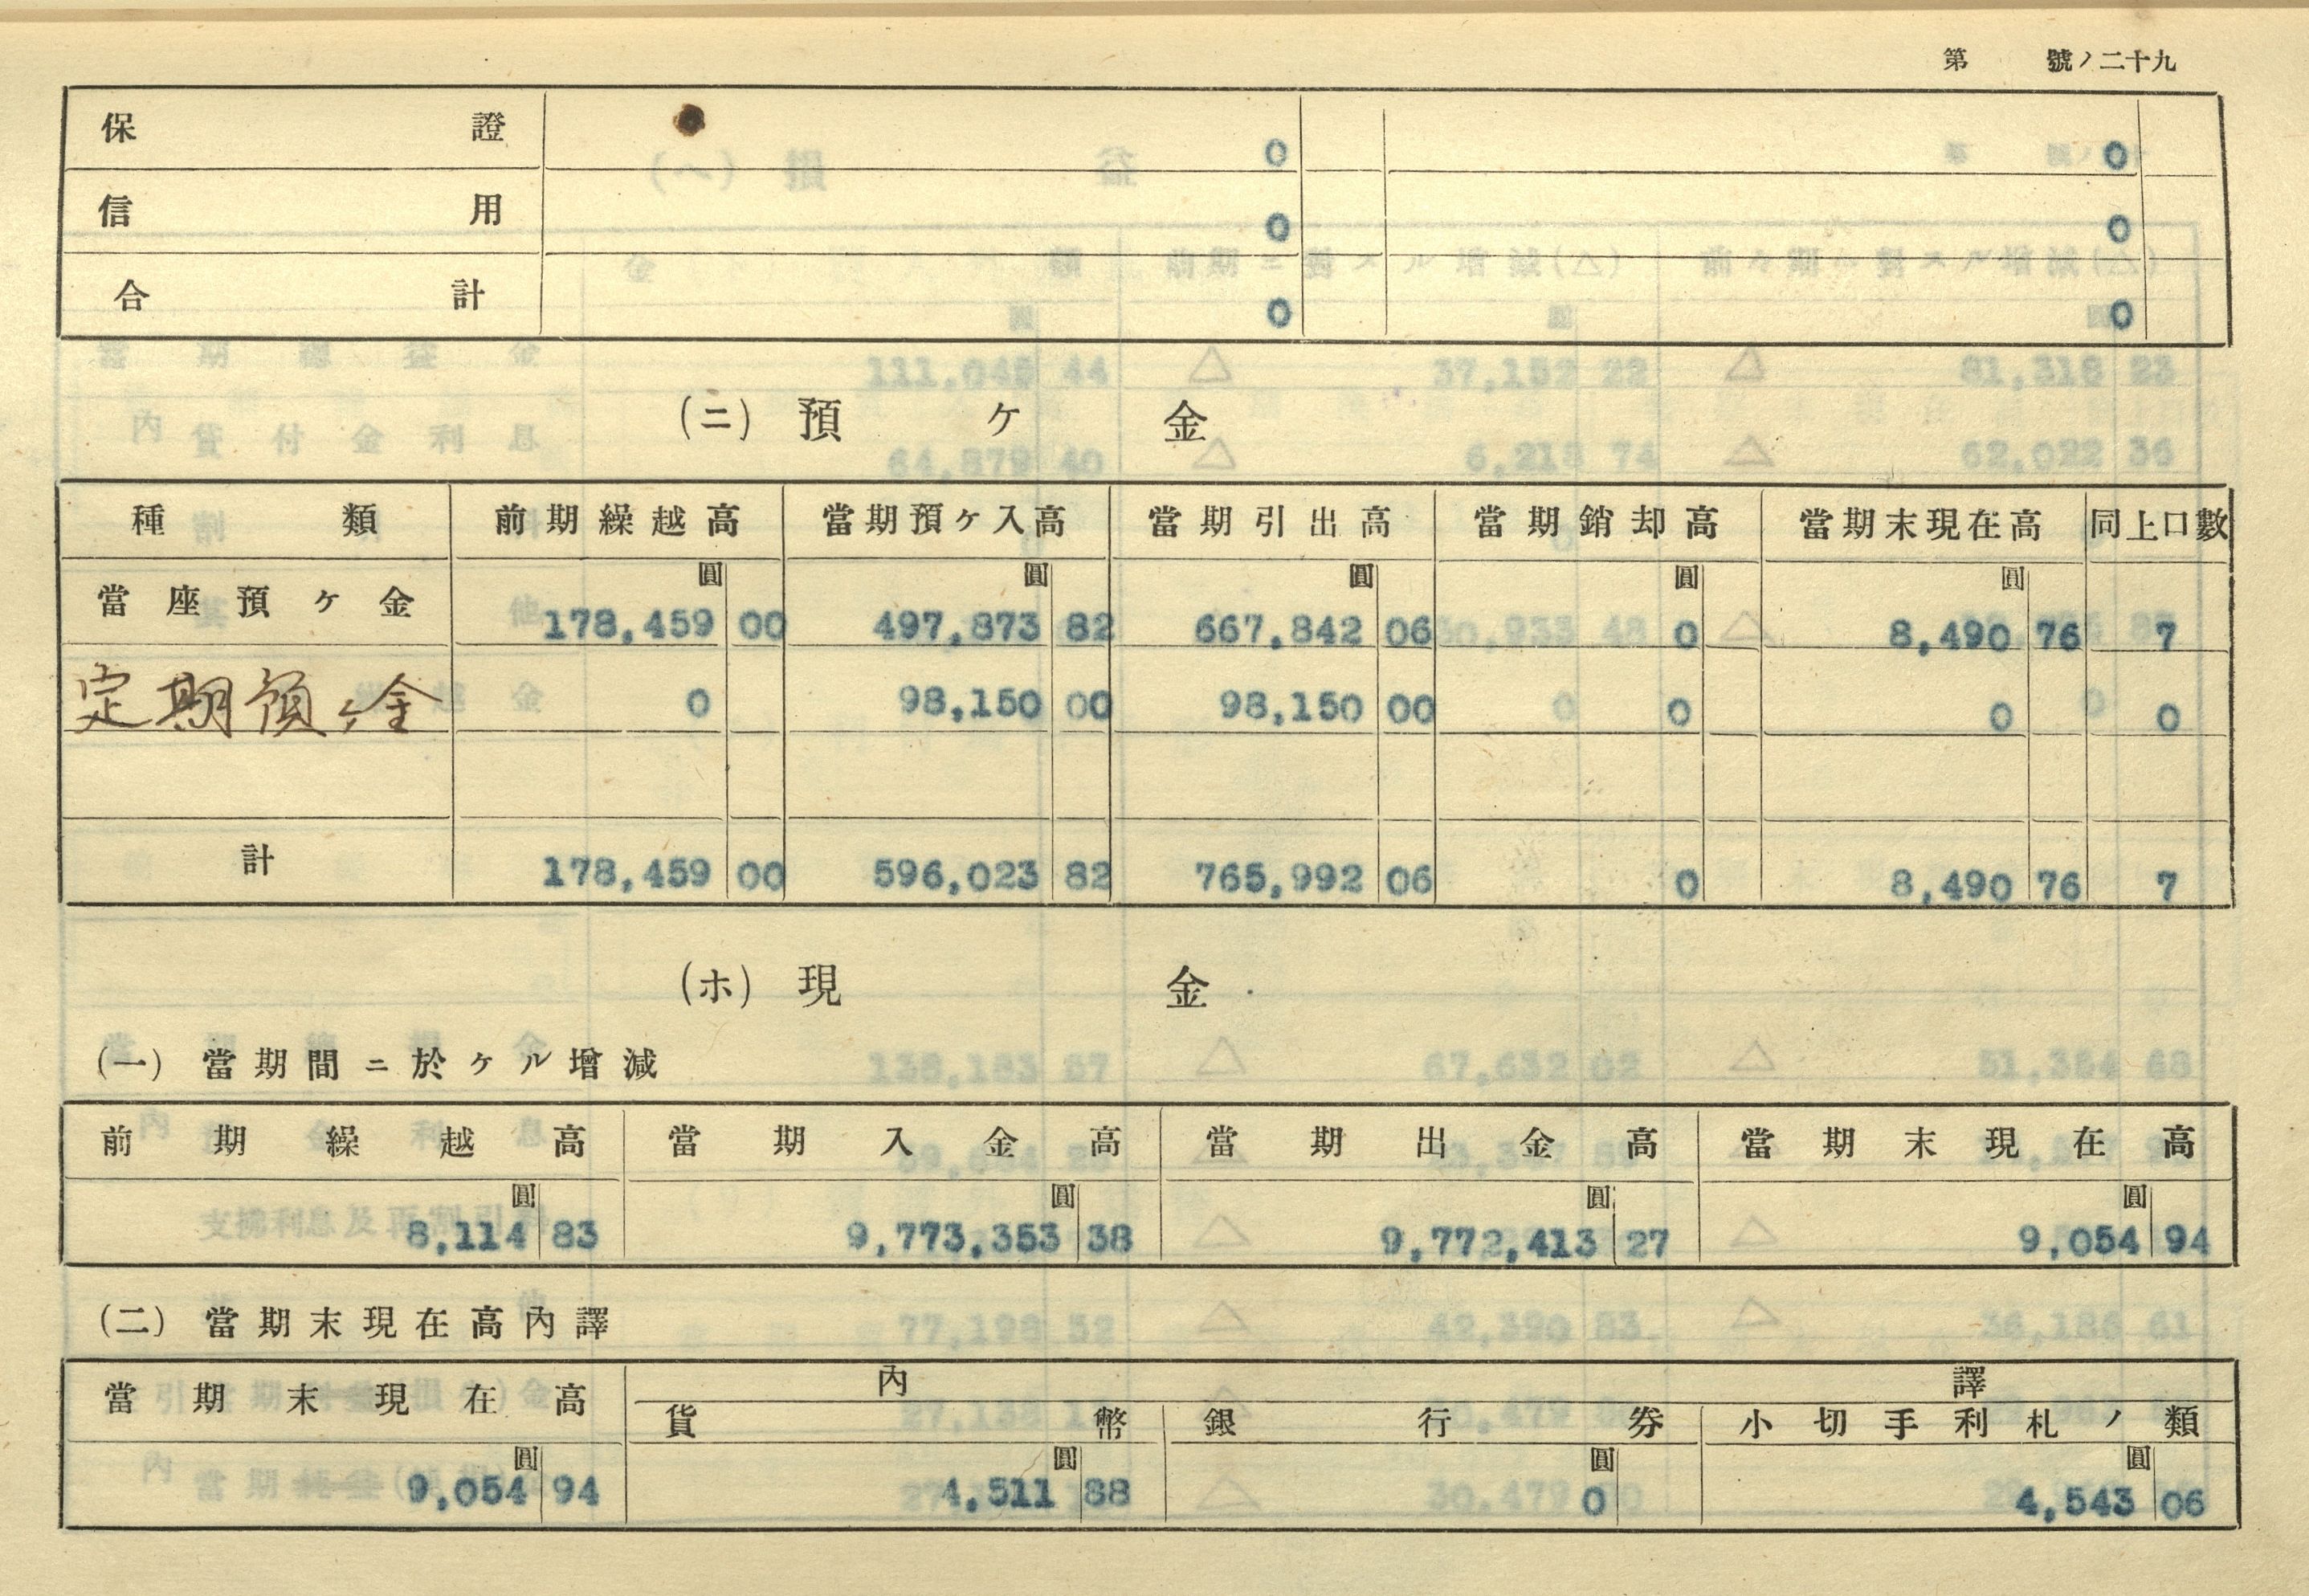 第 號ノ二十九
保證 0 0
信用 0 0
合計 0 0
(ニ) 預ケ金
種類 前期繰越高 當期預ケ入高 當期引出高 當期銷却高 當期末現在高 同上口數
圓 圓 圓 圓 圓
當座預ケ金 178,459 00 497,873 82 667,842 06 0 8,490 76 7
定期預ヶ金 0 98,150 00 98,150 00 0 0 0
計 178,459 00 596,023 82 765,992 06 0 8,490 76 7
(ホ) 現金
(一) 當期間ニ於ケル增減
前期繰越高 當期入金高 當期出金高 當期末現在高
圓 圓 圓 圓
8,114 83 9,773,353 38 9,772,413 27 9,054 94
(二) 當期末現在高內譯
當期末現在高 內譯
貨幣 銀行券 小切手利札ノ類
圓 圓 圓 圓
9,054 94 4,511 88 0 4,543 06